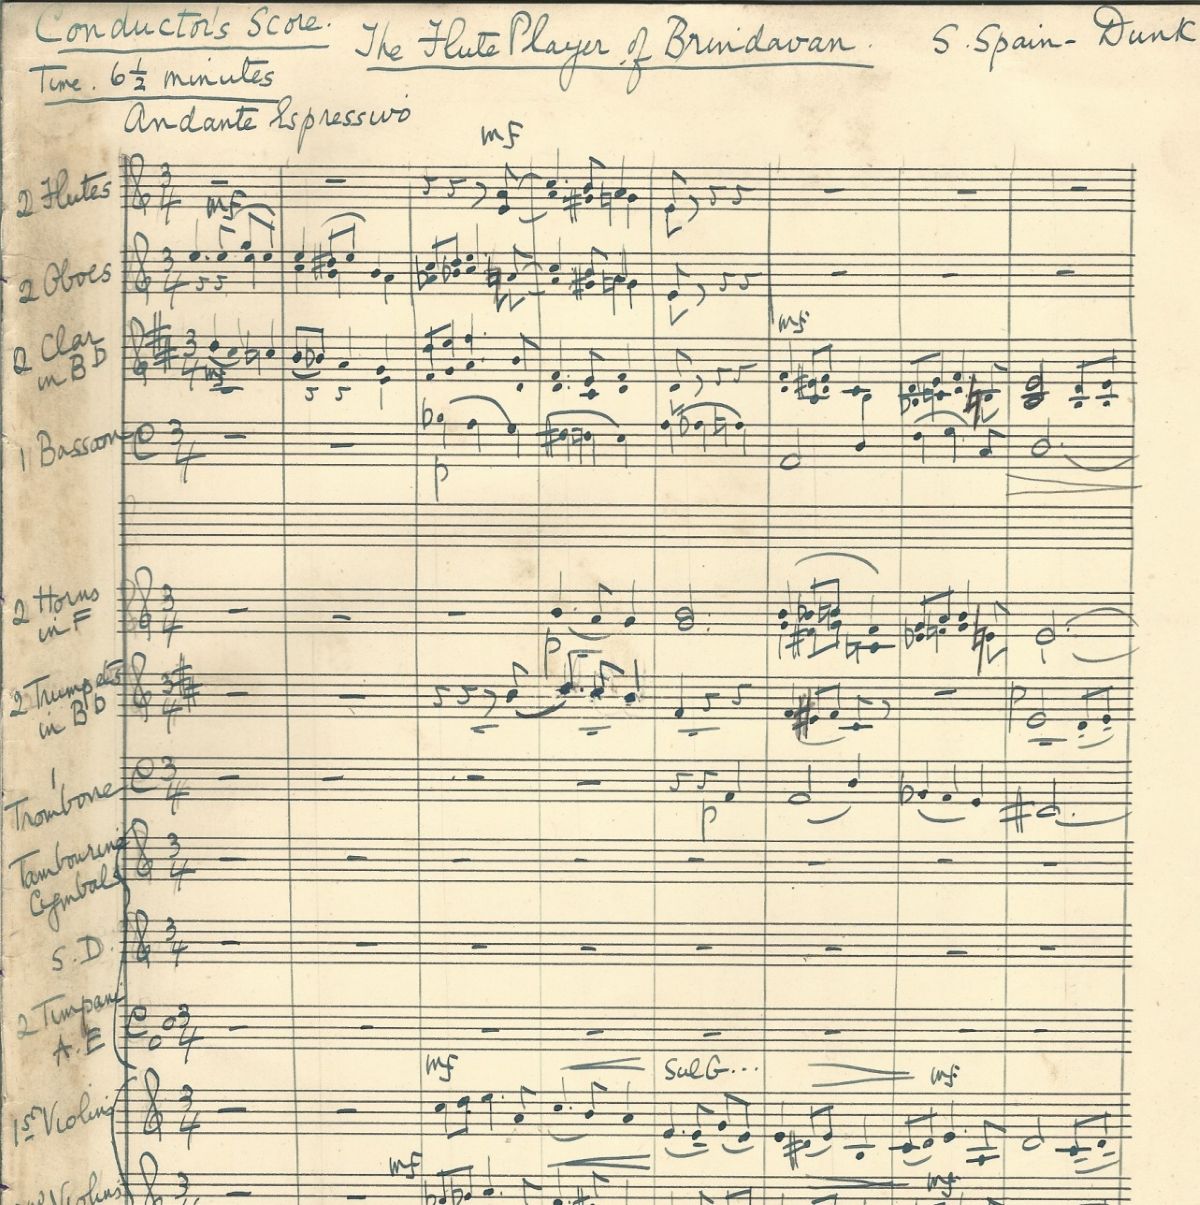 Conductor's Score. The Flute Player of Brindavan. S. Spain-Dunk
Time. 6½ minutes
Andante Espressivo
mf
2 Flutes 3/4
mf
2 Oboes 3/4
mf
2 Clar in B♭ 3/4 mf
1 Bassoon 3/4
p
2 Horns in F 3/4
p
2 Trumpets in B♭ 3/4 p
1 Trombone 3/4
p
Tambourine Cymbals 3/4
S.D. 3/4
2 Timpani A.E 3/4
mf Sul G... mf
1st Violins 3/4
mf mf
2nd Violins 3/4